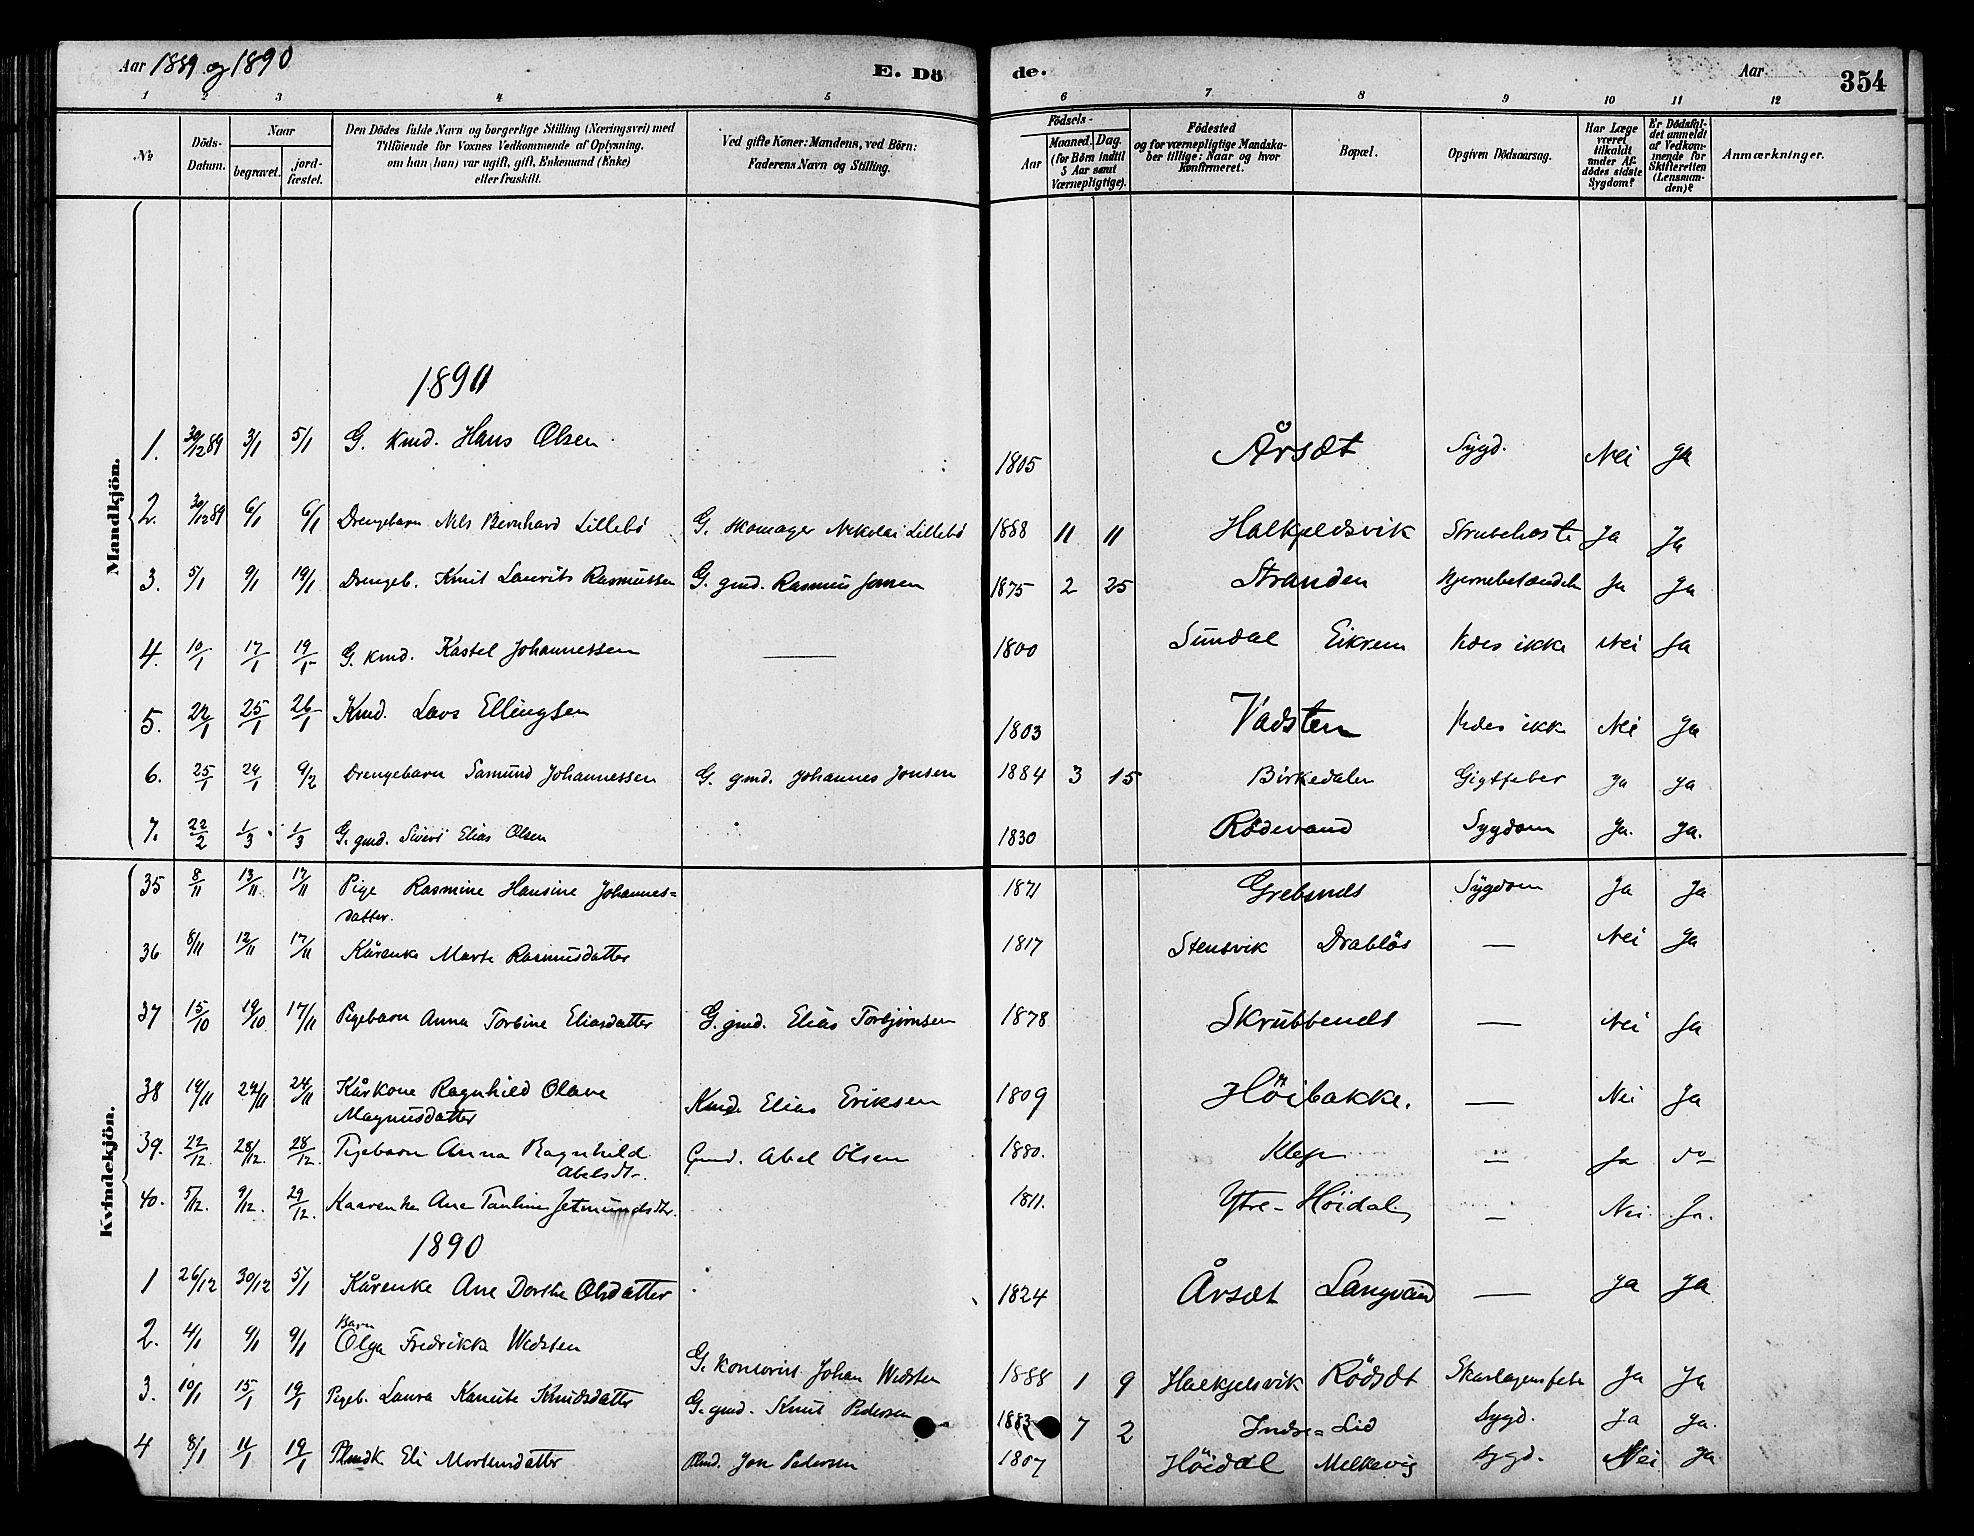 Aar 1889 og 1890 E. Dö de. Aar 354
1 2 3 4 5 6 7 8 9 10 11 12
No
Döds-Datum.
Naar
begravet.
jord-fæstet.
Den Dödes fulde Navn og borgerlige Stilling (Næringsvei) med
Tilföiende for Voxnes Vedkommende af Oplysning,
om han (hun) var ugift, gift, Enkemand (Enke)
eller fraskilt.
Ved gifte Koner: Mandens, ved Börn:
Faderens Navn og Stilling.
Födsels-
Aar
Maaned. Dag.
(for Börn indtil
5 Aar samt
Værnepligtige).
Födested
og for værnepligtige Mandska-
ber tillige: Naar og hvor
konfirmeret.
Bopæl.
Opgiven Dödsaarsag.
Har Læge
været
tilkaldt
under Af-
dödes sidste
Sygdom?
Er Dödsfal-
det anmeldt
af Vedkom-
mende for
Skifteretten
(Lensman-
den)?
Anmærkninger.
Mandkjön.
1890
1. 30/12 89 3/1 5/1 G. Kmd. Hans Olsen 1805 Årsæt Sygd. Nei Ja
2. 30/12 89 6/1 6/1 Drengebarn Nils Bernhard Lillebö G. skomager Nikolai Lillebö 1888 11 11 Halkjeldsvik Strubehoste Ja Ja
3. 5/1 9/1 19/1 Drengeb. Knut Laurits Rasmussen G. gmd. Rasmus 1875 2 25 Stranden Hjernebetændels Ja Ja
4. 10/1 17/1 19/1 G. Kmd. Kastel Johannessen — 1800 Sundal Eikrem Vides ikke Nei Ja
5. 22/1 25/1 26/1 Kmd. Lars Ellingsen 1803 Vadsten Vides ikk Nei Ja
6. 25/1 29/1 9/2 Drengebarn Samund Johannessen G. gmd. Johannes Jonsen 1884 3 15 Birkedalen Gigtfeber Ja Ja
7. 22/2 1/3 1/3 G. gmd. Sivert Elias Olsen 1830 Rödevand Sygdom Ja. Ja.
Kvindekjön.
35 8/11 13/11 17/11 Pige Rasmine Hansine Johannes=
datter. 1871 Grebsnds Sygdom Ja Ja
36 8/11 12/11 17/11 Kårenke Marte Rasmusdatter 1817 Stensvik Drablös — Nei Ja
37 15/10 19/10 17/11 Pigebarn Anna Torbine Eliasdatter G. gmd. Elias Torbjörnsen 1878 Skrubbends — Nei Ja
38 19/11 24/11 24/11 Kårkone Ragnhild Olave
Magnusdatter Kmd. Elias Eriksen 1809 Höibakke. — Nei Ja
39. 22/12. 28/12. 28/12. Pigebarn Anna Ragnhild
Abelsdt. Gmd. Abel Olsen 1880. Klep — Ja do
40. 5/12. 9/12. 29/12. Kaarenke Ane Pauline Jetmundsdtr. 1811. Ytre-Höidal — Nei Ja.
1890
1 26/12 30/12 5/1 Kårenke Ane Dorthe Olsdatter 1824 Årsæt Langvand — Ja Ja
2. 4/1 9/1 9/1 Barn
Olga Fredrikke Wedsten G. Johan Wedsten 1888 1 9 Halkjelsvik Rödsdt Skarlagensfebe Ja Ja
3. 10/1 15/1 19/1 Pigeb. Laura Kanute Knudsdatter G. gmd. Knut Pedersen 1883 7 2 Indre=Lid Sygd. Ja Ja.
4 8/1 11/1 19/1 Plmdk Eli Mortensdatter Plmd. Jon Pedersen 1807 Höidal Melkevig Sygd. Nei Ja